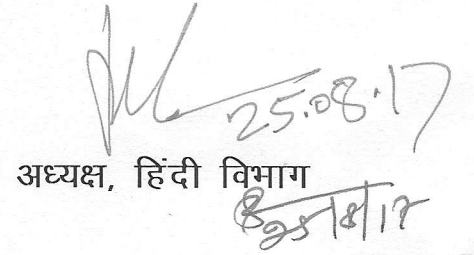 25.08.17
अध्यक्ष, हिंदी विभाग
25/8/17